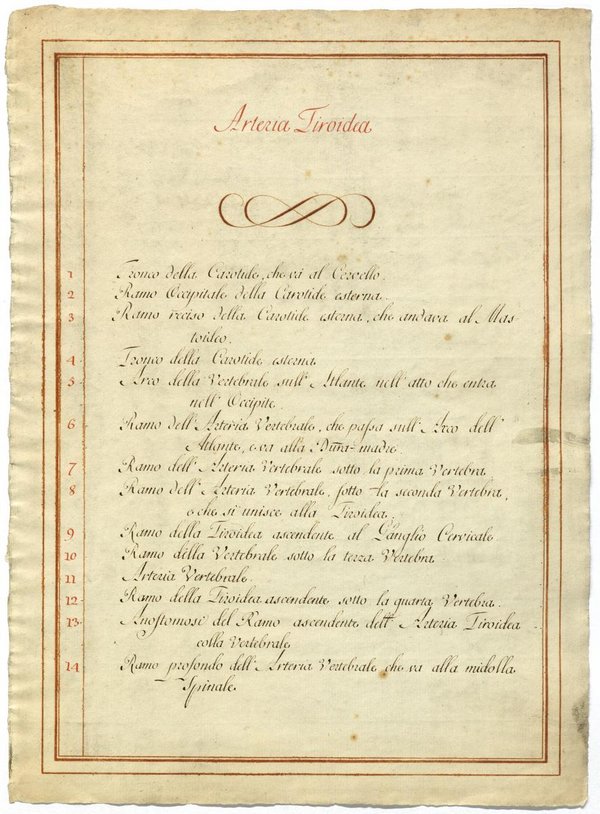 Arteria Tiroidea
1 Tronco della Carotide, che và al Cervello.
2 Ramo Occipitale della Carotide esterna.
3 Ramo reciso della Carotide esterna, che andava al Mas-
toideo.
4 Tronco della Carotide esterna
5 Arco della Vertebrale sull' Atlante nell' atto che entra
nell' Occipite.
6 Ramo dell' Arteria Vertebrale, che passa sull' Arco dell'
Atlante, e va alla Dura-madre.
7 Ramo dell' Arteria Vertebrale sotto la prima Vertebra
8 Ramo dell' Arteria Vertebrale sotto la seconda Vertebra,
e che si unisce alla Tiroidea.
9 Ramo della Tiroidea ascendente al Ganglio Cervicale
10 Ramo della Vertebrale sotto la terza Vertebra
11 Arteria Vertebrale.
12 Ramo della Tiroidea ascendente sotto la quarta Vertebra.
13 Anostomosi del Ramo ascendente dell' Arteria Tiroidea
colla Vertebrale
14 Ramo profondo dell' Arteria Vertebrale che va alla midolla
Spinale.